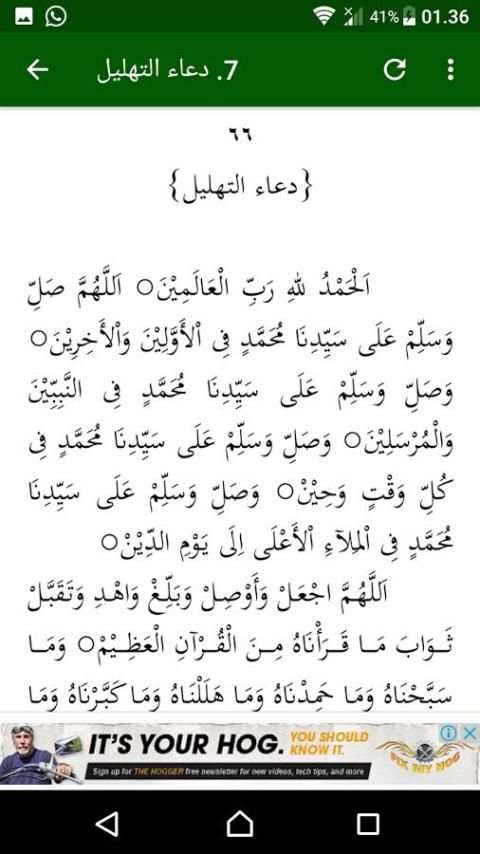 41% 01.36
7. دعاء التهليل
٦٦
{دعاء التهليل}
اَلْحَمْدُ للهِ رَبِّ الْعَالَمِيْنَ○ اَللَّهُمَّ صَلِّ
وَسَلِّمْ عَلَى سَيِّدِنَا مُحَمَّدٍ فِى اْلأَوَّلِيْنَ وَاْلأَخِرِيْنَ○
وَصَلِّ وَسَلِّمْ عَلَى سَيِّدِنَا مُحَمَّدٍ فِى النَّبِيِّيْنَ
وَالْمُرْسَلِيْنَ○ وَصَلِّ وَسَلِّمْ عَلَى سَيِّدِنَا مُحَمَّدٍ فِى
كُلِّ وَقْتٍ وَحِيْنْ○ وَصَلِّ وَسَلِّمْ عَلَى سَيِّدِنَا
مُحَمَّدٍ فِى اْلمِلَاءِ اْلأَعْلَى اِلَى يَوْمِ الدِّيْنْ○
اَللَّهُمَّ اجْعَلْ وَأَوْصِلْ وَبَلِّغْ وَاهْدِ وَتَقَبَّلْ
ثَوَابَ مَا قَرَأْنَاهُ مِنَ الْقُرْآنِ الْعَظِيْمْ○ وَمَا
سَبَّحْنَاهُ وَمَا حَمِدْنَاهُ وَمَا هَلَلْنَاهُ وَمَا كَبَّرْنَاهُ وَمَا
IT'S YOUR HOG. YOU SHOULD KNOW IT.
Sign up for THE HOGGER free newsletter for new videos, tech tips, and more
FIX MY HOG